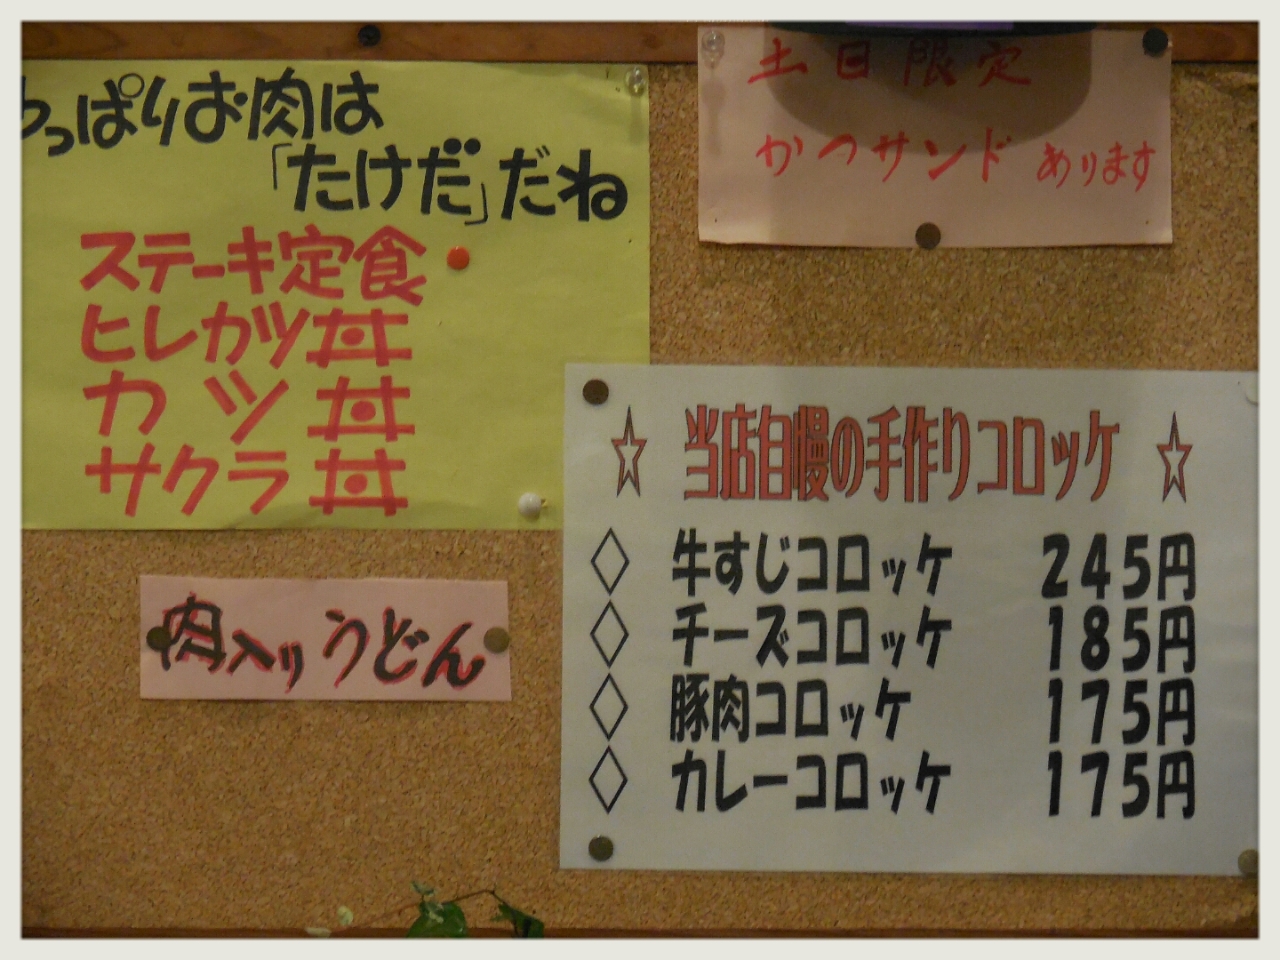 やっぱりお肉は
「たけだ」だね
ステーキ定食
ヒレカツ丼
カツ丼
サクラ丼
土日限定
かつサンド あります
肉入り うどん
☆ 当店自慢の手作りコロッケ ☆
◇ 牛すじコロッケ 245円
◇ チーズコロッケ 185円
◇ 豚肉コロッケ 175円
◇ カレーコロッケ 175円